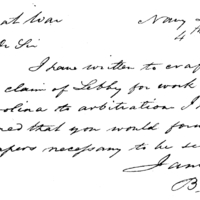 at War Navy
4th
Dr Sir
I have written to
claim of Libby for work
olina to arbitration I
ned that you would
apers necessary to be se
I am
B